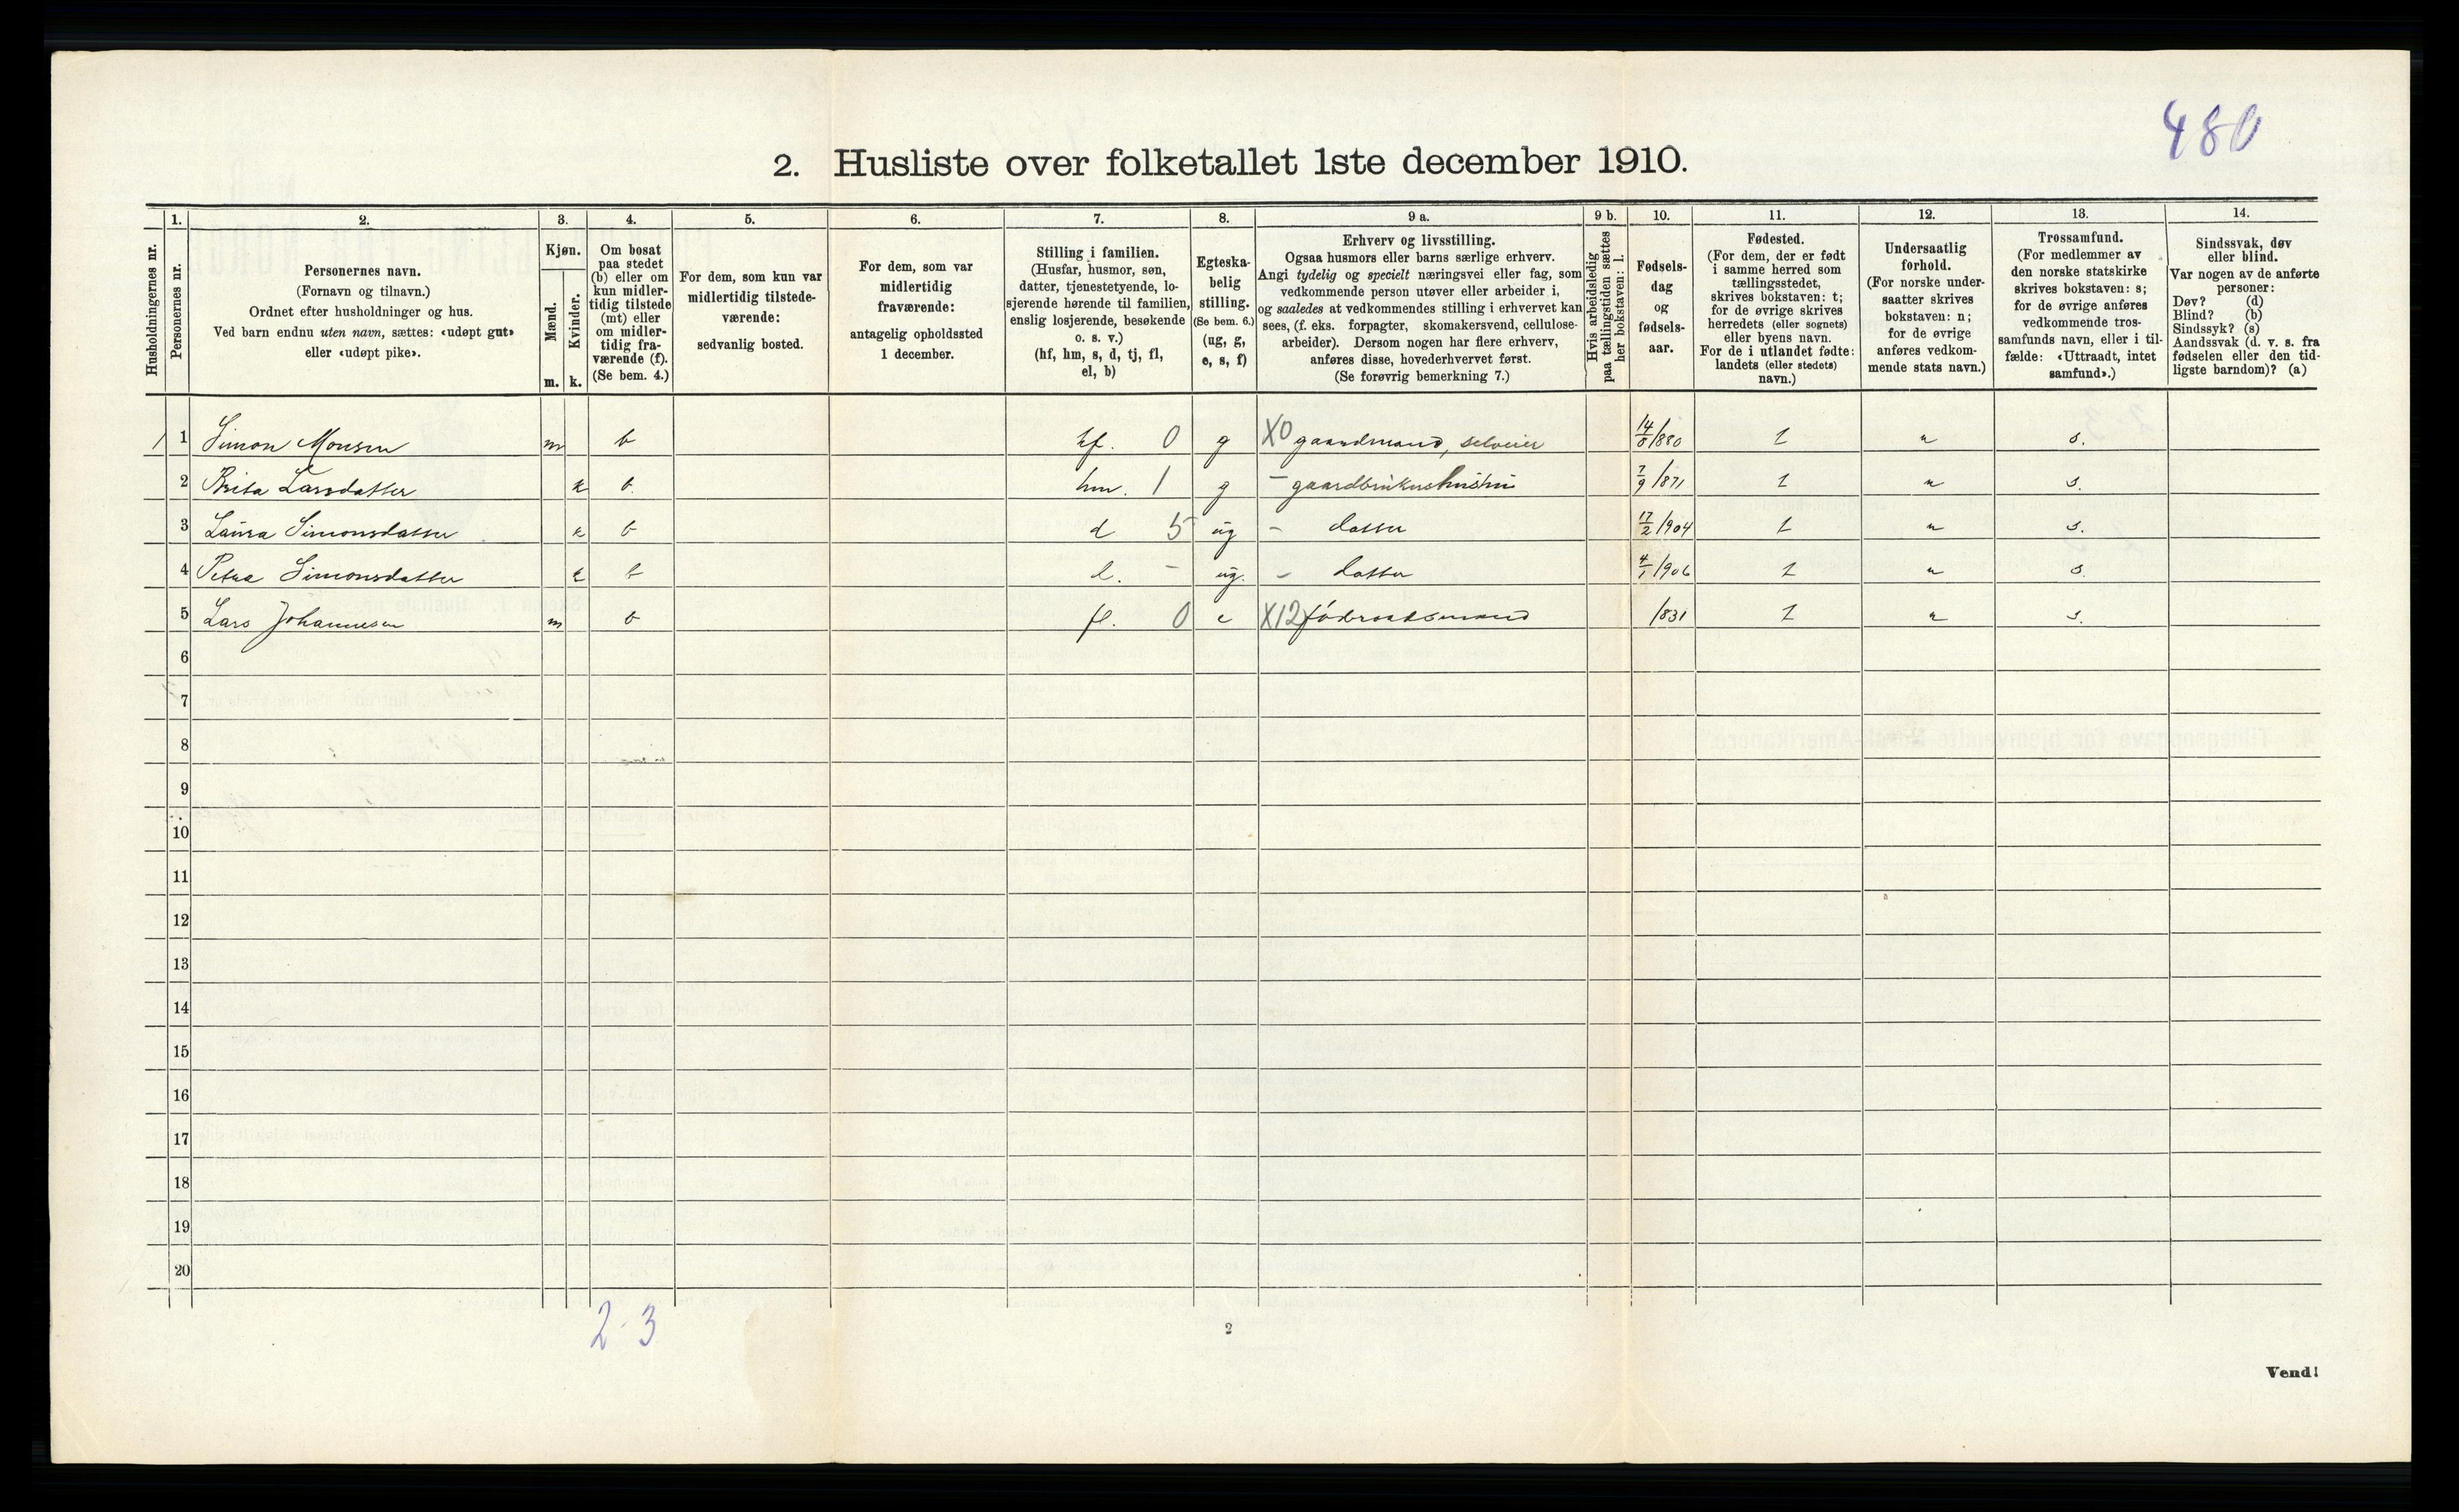 480
2. Husliste over folketallet 1ste december 1910.
1. 2. 3. 4. 5. 6. 7. 8. 9 a. 9 b. 10. 11. 12. 13. 14.
Husholdningernes nr.
Personernes nr.
Personernes navn.
(Fornavn og tilnavn.)
Ordnet efter husholdninger og hus.
Ved barn endnu uten navn, sættes: «udøpt gut»
eller «udøpt pike».
Kjøn.
Mænd.
Kvinder.
m. k.
Om bosat
paa stedet
(b) eller om
kun midler-
tidig tilstede
(mt) eller
om midler-
tidig fra-
værende (f).
(Se bem. 4.)
For dem, som kun var
midlertidig tilstede-
værende:
sedvanlig bosted.
For dem, som var
midlertidig
fraværende:
antagelig opholdssted
1 december.
Stilling i familien.
(Husfar, husmor, søn,
datter, tjenestetyende, lo-
sjerende hørende til familien,
enslig losjerende, besøkende
o. s. v.)
(hf, hm, s, d, tj, fl,
el, b)
Egteska-
belig
stilling.
(Se bem. 6.)
(ug, g,
e, s, f)
Erhverv og livsstilling.
Ogsaa husmors eller barns særlige erhverv.
Angi tydelig og specielt næringsvei eller fag, som
vedkommende person utøver eller arbeider i,
og saaledes at vedkommendes stilling i erhvervet kan
sees, (f. eks. forpagter, skomakersvend, cellulose-
arbeider). Dersom nogen har flere erhverv,
anføres disse, hovederhvervet først.
(Se forøvrig bemerkning 7.)
Hvis arbeidsledig
paa tællingstiden sættes
her bokstaven: l.
Fødsels-
dag
og
fødsels-
aar.
Fødested.
(For dem, der er født
i samme herred som
tællingsstedet,
skrives bokstaven: t;
for de øvrige skrives
herredets (eller sognets)
eller byens navn.
For de i utlandet fødte:
landets (eller stedets)
navn.)
Undersaatlig
forhold.
(For norske under-
saatter skrives
bokstaven: n;
for de øvrige
anføres vedkom-
mende stats navn.)
Trossamfund.
(For medlemmer av
den norske statskirke
skrives bokstaven: s;
for de øvrige anføres
vedkommende tros-
samfunds navn, eller i til-
fælde: «Uttraadt, intet
samfund».)
Sindssvak, døv
eller blind.
Var nogen av de anførte
personer:
Døv? (d)
Blind? (b)
Sindssyk? (s)
Aandssvak (d. v. s. fra
fødselen eller den tid-
ligste barndom)? (a)
1 1 Simon Monsen m b hf. 0 g X0 gaardmand, selveier 14/8/880 t n s.
2 Brita Larsdatter k b. hm. 1 g - gaardbrukerhustru 7/9/871 t n s.
3 Laura Simonsdatter k b d 5 ug - datter 17/2/904 t n s.
4 Petra Simonsdatter k b d. - ug. - datter 4/1/906 t n s.
5 Lars Johannesen m b fl. 0 e X12 føderaadsmand /831 t n s.
6
7
8
9
10
11
12
13
14
15
16
17
18
19
20
2-3
2
Vend!